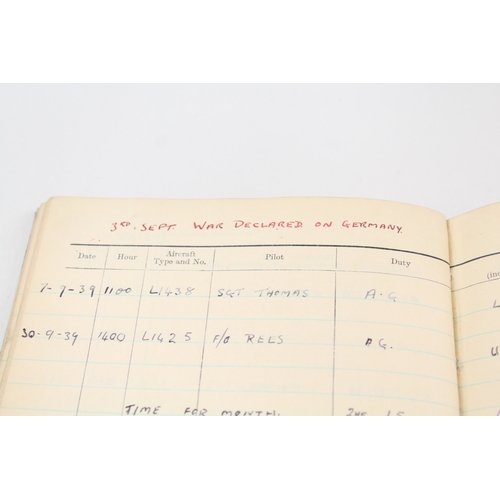 3RD. SEPT WAR DECLARED ON GERMANY.
Date Hour Aircraft Type and No. Pilot Duty
7-9-39 1100 L1438 SGT THOMAS A-G
30-9-39 1400 L1425 F/O RELS AG.
TIME FOR MONTH.